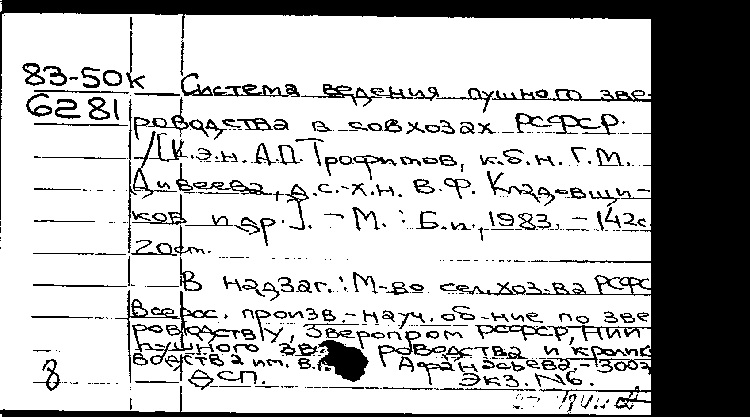 83-50к
6281
Система ведения пушного зве-
роводства в совхозах РСФСР.
/[К.э.н. А.П. Трофимов, к.б.н. Г.М.
Дивеева, д.с.-х.н. В.Ф. Кладовщи-
ков и др.]. - М. : Б.и., 1983. - 142с.
20см.
В надзаг. : М-во сел. хоз-ва РСФС
Всерос. произв.-науч. об-ние по зве
роводству, Зверопром РСФСР, НИИ
пушного зве роводства и кролик
водства им. В. Афанасьева. - 300э
ДСП. Экз. N6.
8